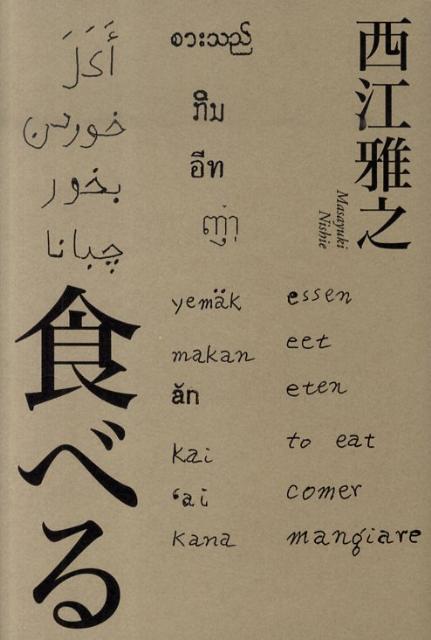 西江雅之
Masayuki
Nishie
食べる
أَكَلَ
خوردن
بخور
چبانا
စားသည်
กิน
อีท
yemäk
makan
ăn
kai
‘ai
kana
essen
eet
eten
to eat
comer
mangiare